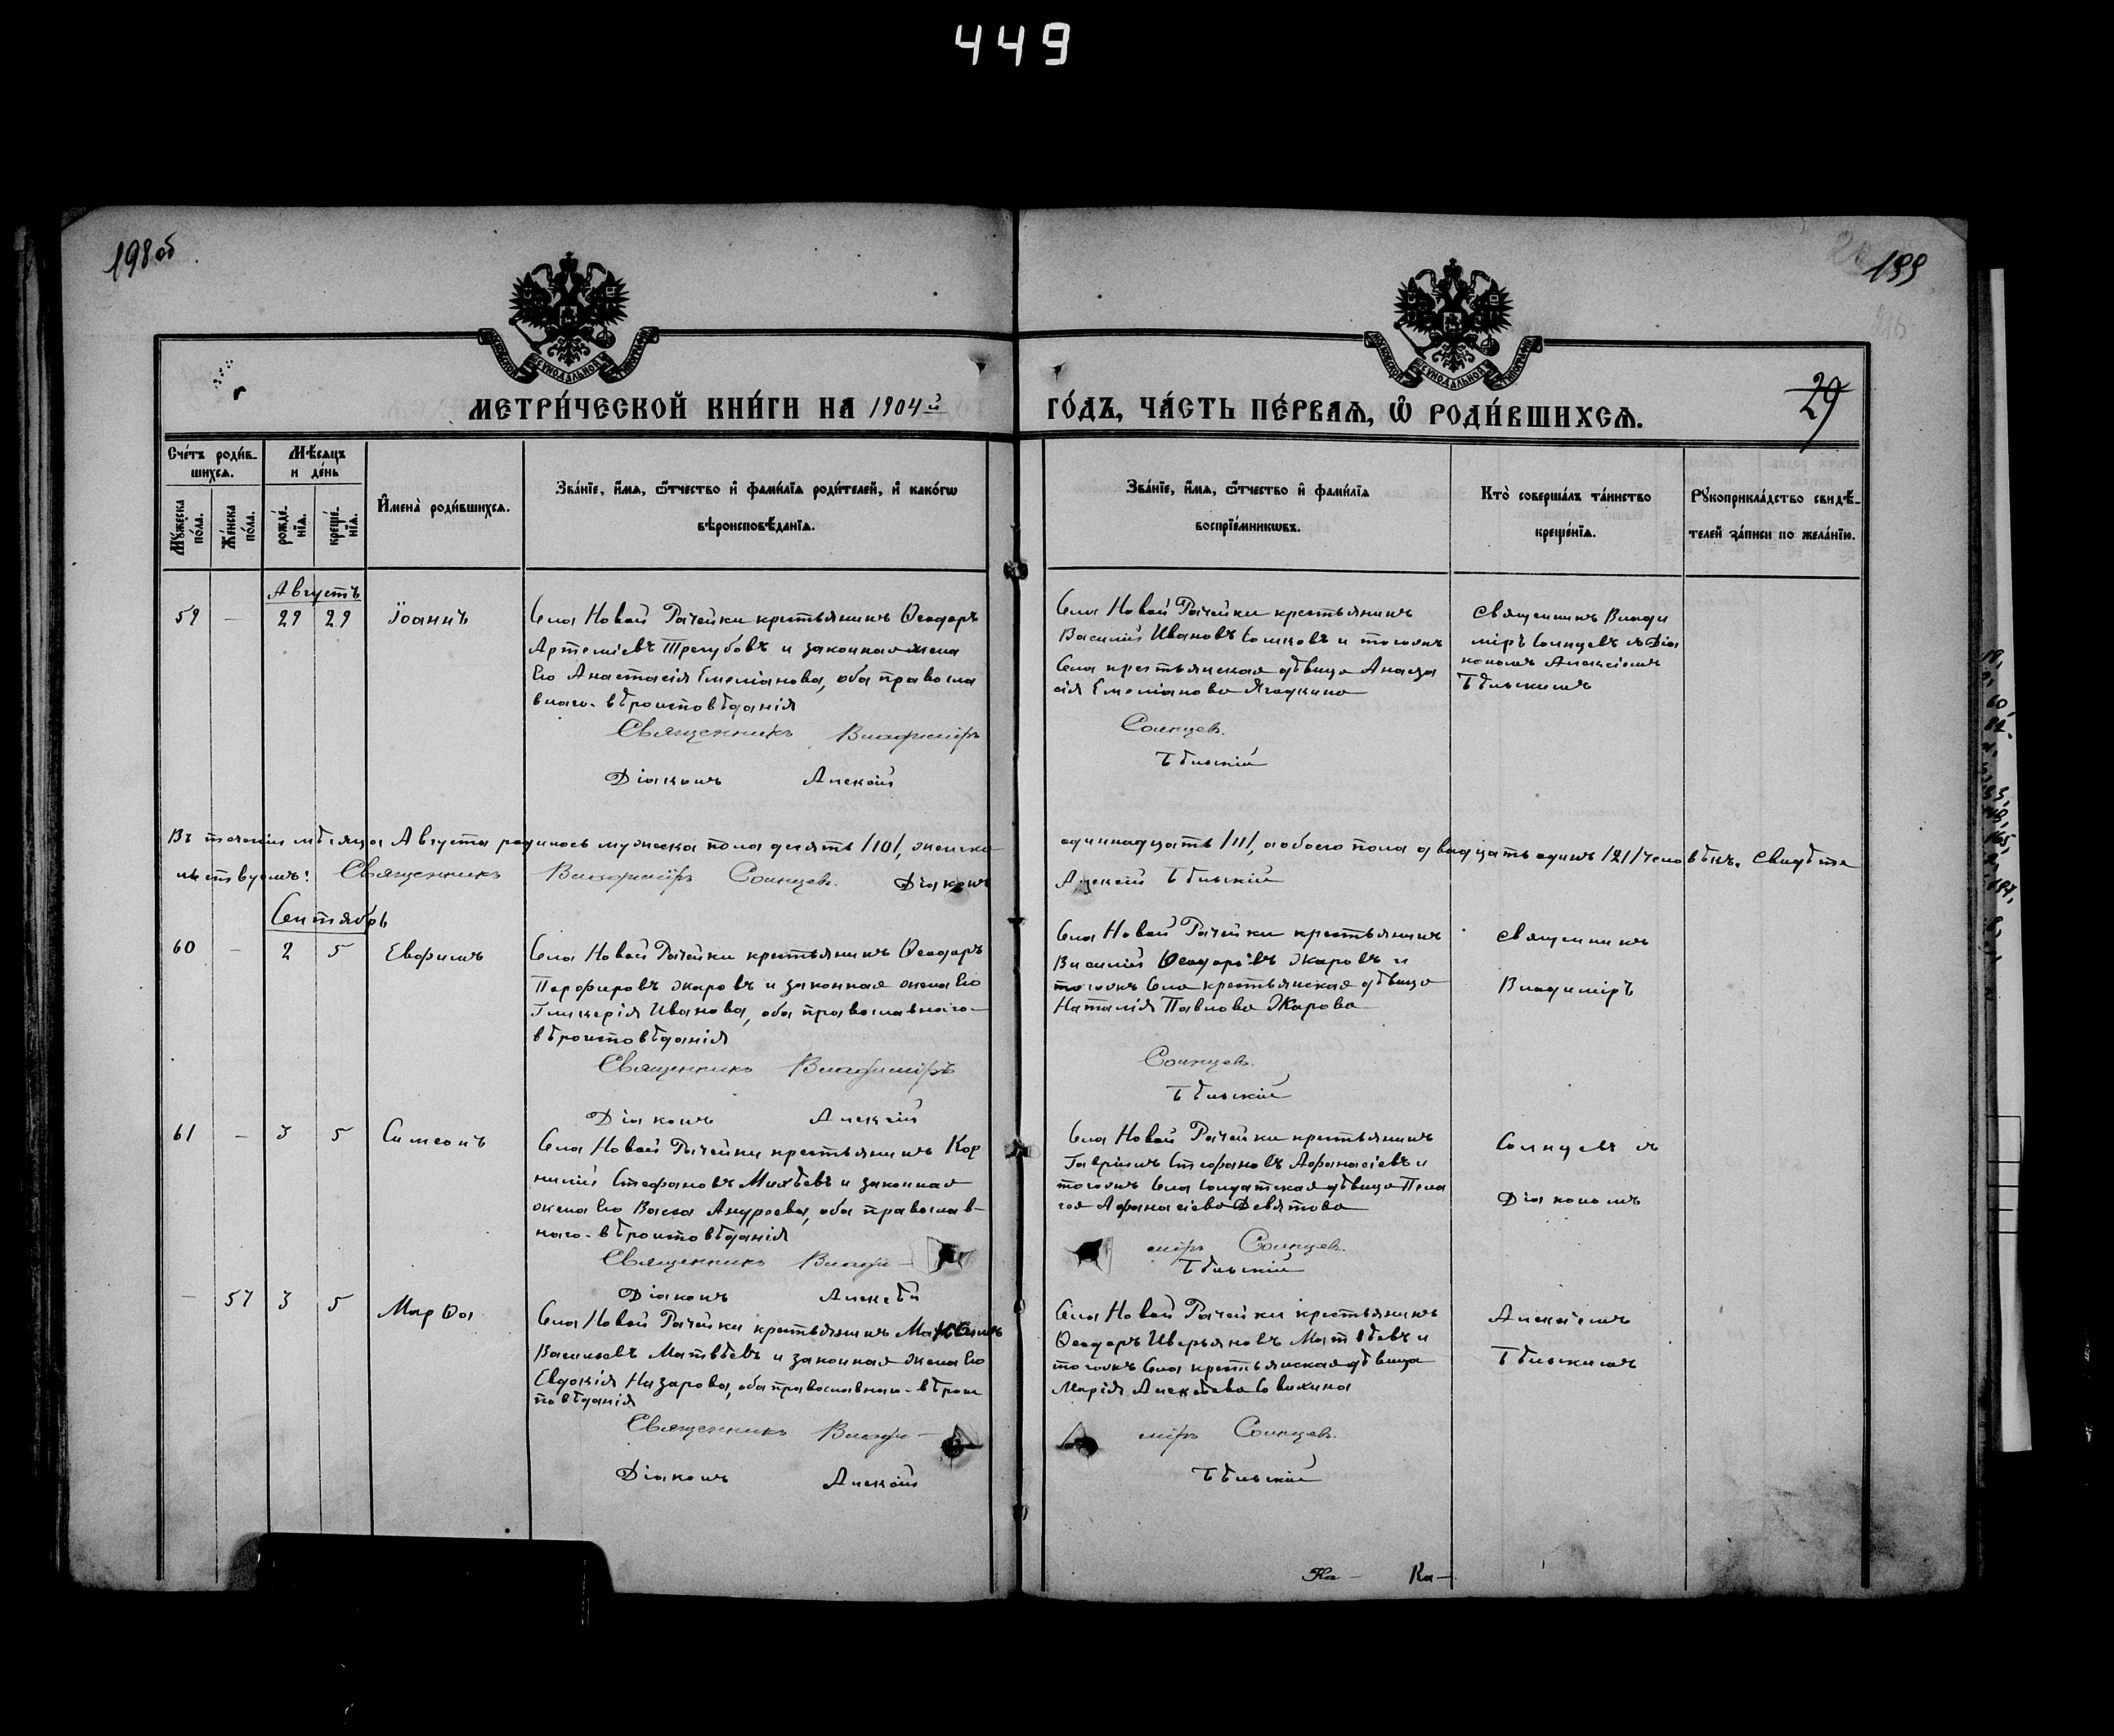 449
198об
199
29
МЕТРИ́ЧЕСКОЙ КНИ́ГИ НА 1904й
ГО́ДЪ, ЧА́СТЬ ПЕ́РВАѦ, Ѡ҆ РОДИ́ВШИХСѦ.
Сче́тъ роди́в-
шихсѧ.
Мѣ́сѧцъ
и де́нь
Мꙋ́жеска
по́ла.
Же́нска
по́ла.
рожде́-
нїѧ.
креще́-
нїѧ.
И҆мена̀ роди́вшихсѧ.
Зва́нїе, и҆́мѧ, ѻ҆́тчество и҆ фами́лїѧ роди́телей, и҆ како́гѡ
вѣроисповѣ́данїѧ.
Зва́нїе, и҆́мѧ, ѻ҆́тчество и҆ фами́лїѧ
воспрїе́мникѡвъ.
Кто̀ соверша́лъ та́инство
креще́нїѧ.
Рꙋкоприкла́дство свидѣ́-
телей за́писи по жела́нїю.
Августъ
59 — 29 29 Іоаннъ
Села Новой Рачейки крестьянинъ Ѳеодоръ
Артемiевъ Трегубовъ и законная жена
его Анастасія Емеліанова, оба правосла
внаго вѣроисповѣданія
Священникъ Владиміръ
Діаконъ Алексій
Села Новой Рачейки крестьянинъ
Василій Ивановъ и тогожъ
села крестьянская дѣвица
Емеліанова Ягодкина
Солнцев.
Бѣльскій
священникъ Влади
міръ Солнцевъ съ Діа
кономъ Алексіемъ
Бѣльскимъ
Въ теченіи мѣсяца Августа родилось мужеска пола десять /10/, женска
одиннадцать /11/, а обоего пола двадцать одинъ /21/ человѣкъ. Свидѣте
льствуемъ: Священникъ Владиміръ Солнцев. Діаконъ
Алексій Бѣльскій
Сентябрь
60 — 2 5 Евфимъ
Села Новой Рачейки крестьянинъ Ѳеодоръ
Перфировъ Жаровъ и законная жена его
Гликерія Иванова, оба православнаго
вѣроисповѣданія
Священникъ Владиміръ
Діаконъ Алексій
Села Новой Рачейки крестьянинъ
Василій Ѳеодоровъ Жаровъ и
тогожъ села крестьянская дѣвица
Наталія Павлова Жарова
Солнцев.
Бѣльскій
священникъ
Владиміръ
61 — 3 5 Симеонъ
Села Новой Рачейки крестьянинъ Кор
нилій Стефановъ Михѣевъ и законная
жена его Васса Андреева, оба православ-
наго вѣроисповѣданія
Священникъ Влади-
Діаконъ Алексѣй
Села Новой Рачейки крестьянинъ
Гавріилъ Стефановъ Афанасіевъ и
тогожъ села солдатская дѣвица Пела
гея Афанасіева Девятова
міръ Солнцев.
Бѣльскій
Солнцевъ съ
Діакономъ
— 57 3 5 Марѳа
Села Новой Рачейки крестьянинъ
Васильевъ Матвѣевъ и законная жена его
Евдокія Назарова, оба православнаго вѣроис
повѣданія
Священникъ Влади-
Діаконъ Алексій
Села Новой Рачейки крестьянинъ
Ѳеодоръ Аверьяновъ Матвѣевъ и
тогожъ села крестьянская дѣвица
Марія Алексѣева
міръ Солнцев.
Бѣльскій
Алексіемъ
Бѣльскимъ
На- Ка-